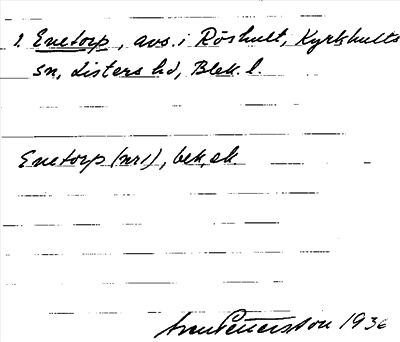 1. Enetorp, avs. i Röshult, Kyrkhults
sn, Listers hd, Blek. l.
Enetorp (nr 1), bek, ek.
1936